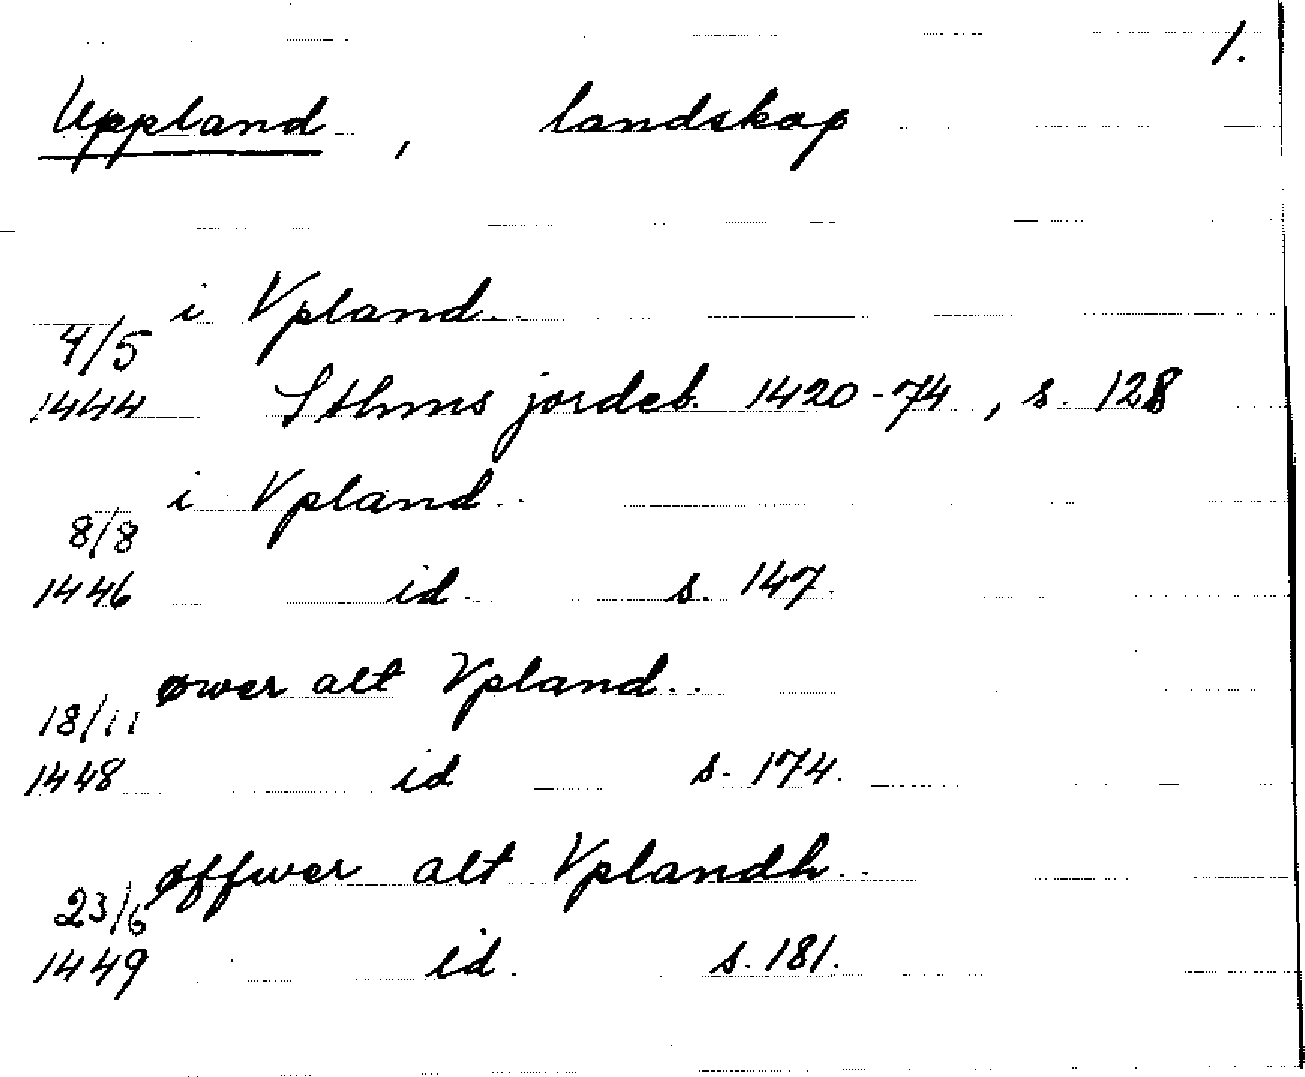 1.
Uppland, landskap
i Vpland
4/5
1444 Sthms jordeb. 1420-74, s. 128
i Vpland
8/8
1446 id s. 147
øwer alt Vpland
18/11
1448 id s. 174.
øffwer alt Vplandh
23/6
1449 id. s. 181.